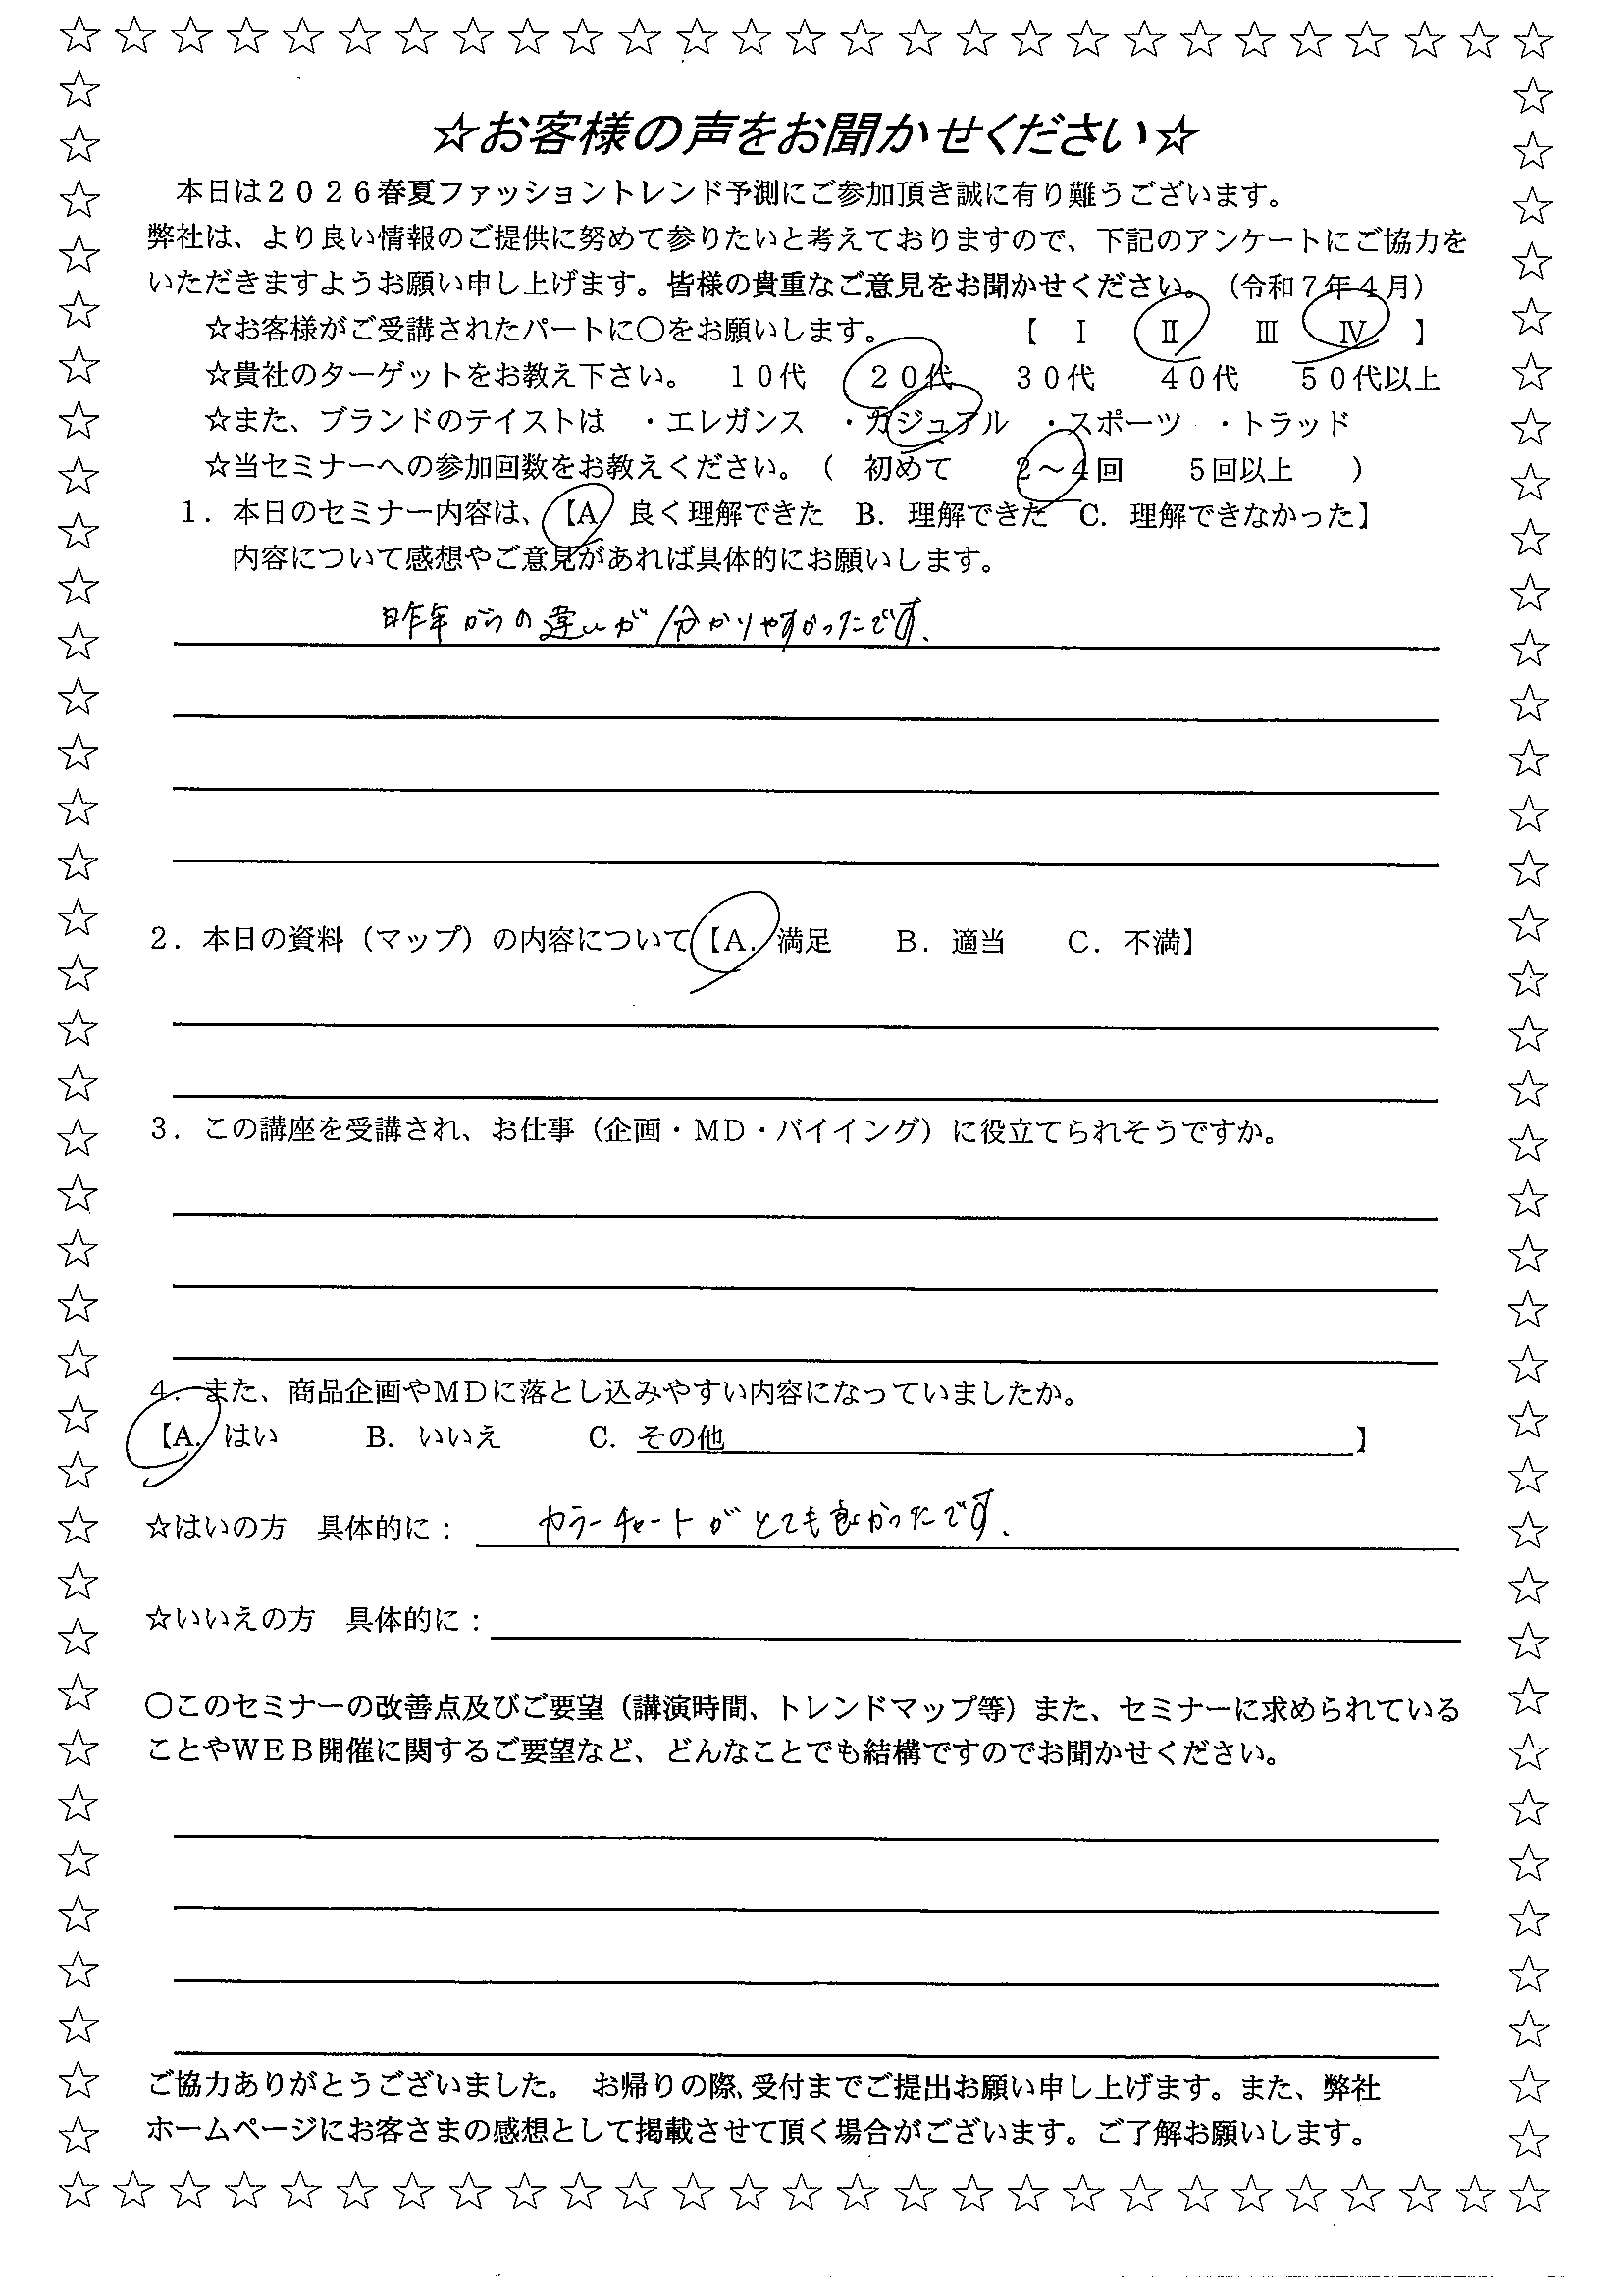 ☆お客様の声をお聞かせください☆
本日は２０２６春夏ファッショントレンド予測にご参加頂き誠に有り難うございます。
弊社は、より良い情報のご提供に努めて参りたいと考えておりますので、下記のアンケートにご協力を
いただきますようお願い申し上げます。皆様の貴重なご意見をお聞かせください。（令和７年４月）
☆お客様がご受講されたパートに〇をお願いします。　【　Ⅰ　Ⅱ　Ⅲ　Ⅳ　】
☆貴社のターゲットをお教え下さい。　１０代　２０代　３０代　４０代　５０代以上
☆また、ブランドのテイストは　・エレガンス　・カジュアル　・スポーツ　・トラッド
☆当セミナーへの参加回数をお教えください。（　初めて　２～４回　５回以上　）
１．本日のセミナー内容は、【A　良く理解できた　B．理解できた　C．理解できなかった】
内容について感想やご意見があれば具体的にお願いします。
昨年からの違いが分かりやすかったです.
２．本日の資料（マップ）の内容について【A．満足　B．適当　C．不満】
３．この講座を受講され、お仕事（企画・MD・バイイング）に役立てられそうですか。
４．また、商品企画やMDに落とし込みやすい内容になっていましたか。
【A．はい　B．いいえ　C．その他　】
☆はいの方　具体的に：カラーチャートがとても良かったです.
☆いいえの方　具体的に：
〇このセミナーの改善点及びご要望（講演時間、トレンドマップ等）また、セミナーに求められている
ことやＷＥＢ開催に関するご要望など、どんなことでも結構ですのでお聞かせください。
ご協力ありがとうございました。　お帰りの際､受付までご提出お願い申し上げます。また、弊社
ホームページにお客さまの感想として掲載させて頂く場合がございます。ご了解お願いします。